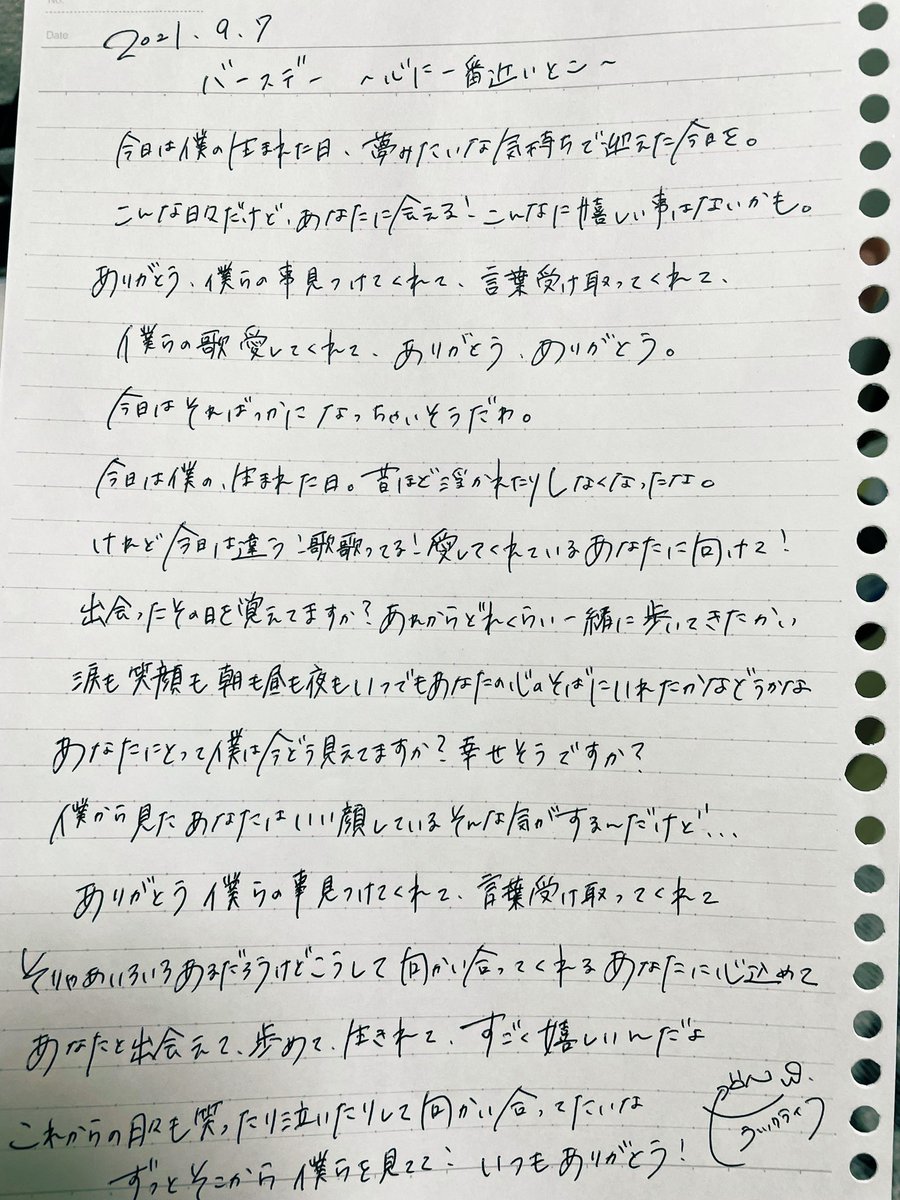 No.
Date
2021.9.7
バースデー ~心に一番近いとこ~
今日は僕の生まれた日、夢みたいな気持ちで迎えた今日を。
こんな日々だけど、あなたに会える!こんなに嬉しい事はないかも。
ありがとう、僕らの事見つけてくれて、言葉受け取ってくれて、
僕らの歌愛してくれて、ありがとう、ありがとう。
今日はそればっかになっちゃいそうだわ。
今日は僕の、生まれた日。昔ほど浮かれたりしなくなったな。
けれど今日は違う!歌歌ってる!愛してくれているあなたに向けて!
出会ったその日を覚えてますか?あれからどれくらい一緒に歩いてきたかい
涙も笑顔も朝も昼も夜もいつでもあなたの心のそばにいれたかなどうかな
あなたにとって僕は今どう見えてますか?幸せそうですか?
僕から見たあなたはいい顔しているそんな気がするんだけど...
ありがとう 僕らの事見つけてくれて、言葉受け取ってくれて
そりゃあいろいろあるだろうけどこうして向かい合ってくれるあなたに心込めて
あなたと出会えて、歩めて、生きれて、すごく嬉しいんだよ
これからの日々も笑ったり泣いたりして向かい合ってたいな
ずっとそこから僕らを見てて! いつもありがとう!
ラックライフ